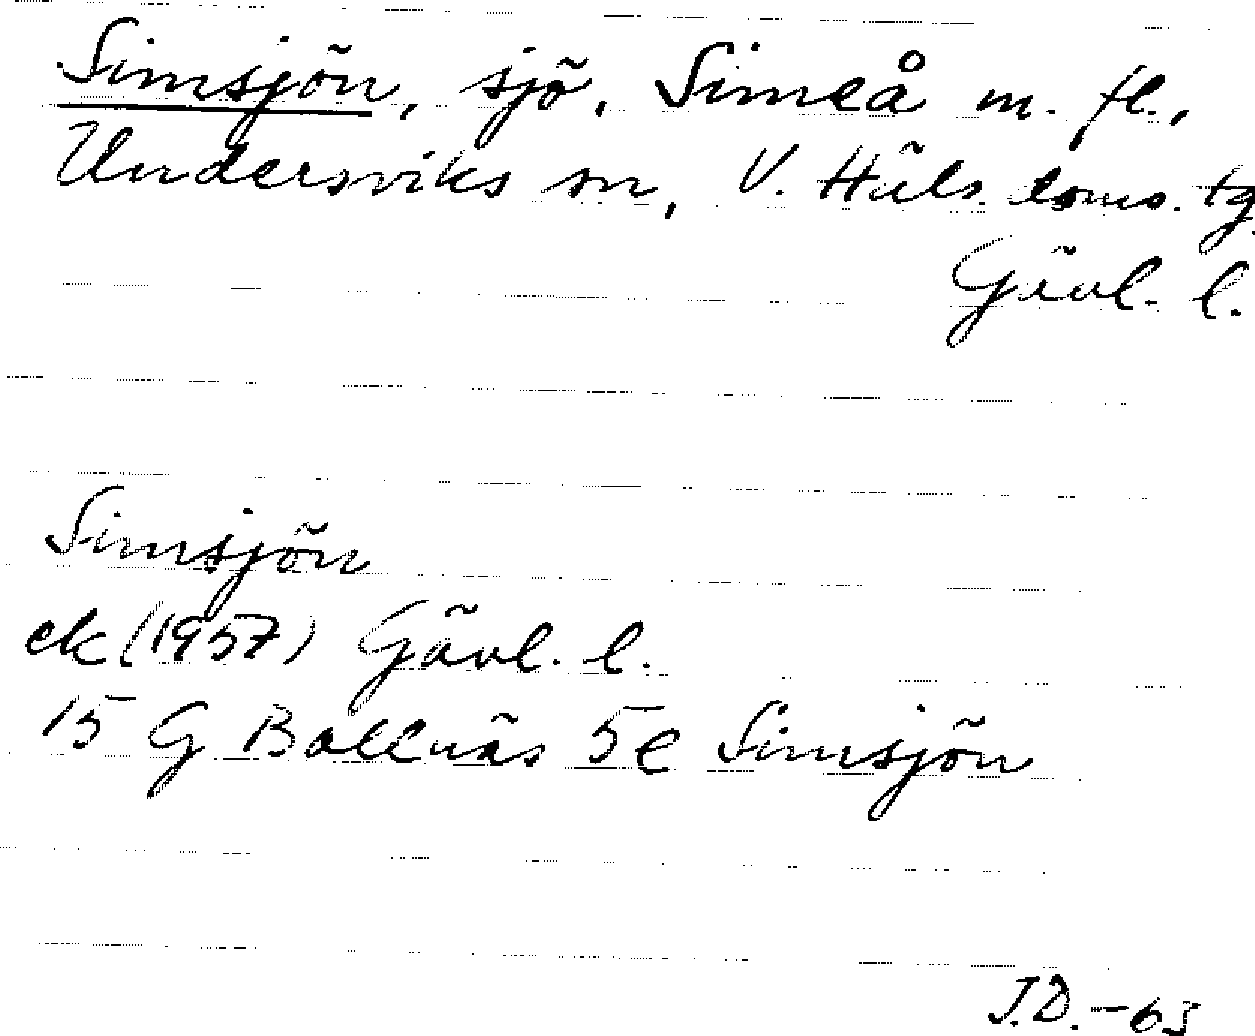 Simsjön, sjö, Simeå m. fl.,
Undersviks sn, V. Häls. doms. tg
Gävl. l.
Simsjön
ek (1957) Gävl. l.
15 G Bollnäs 5e Simsjön
J.D. -63